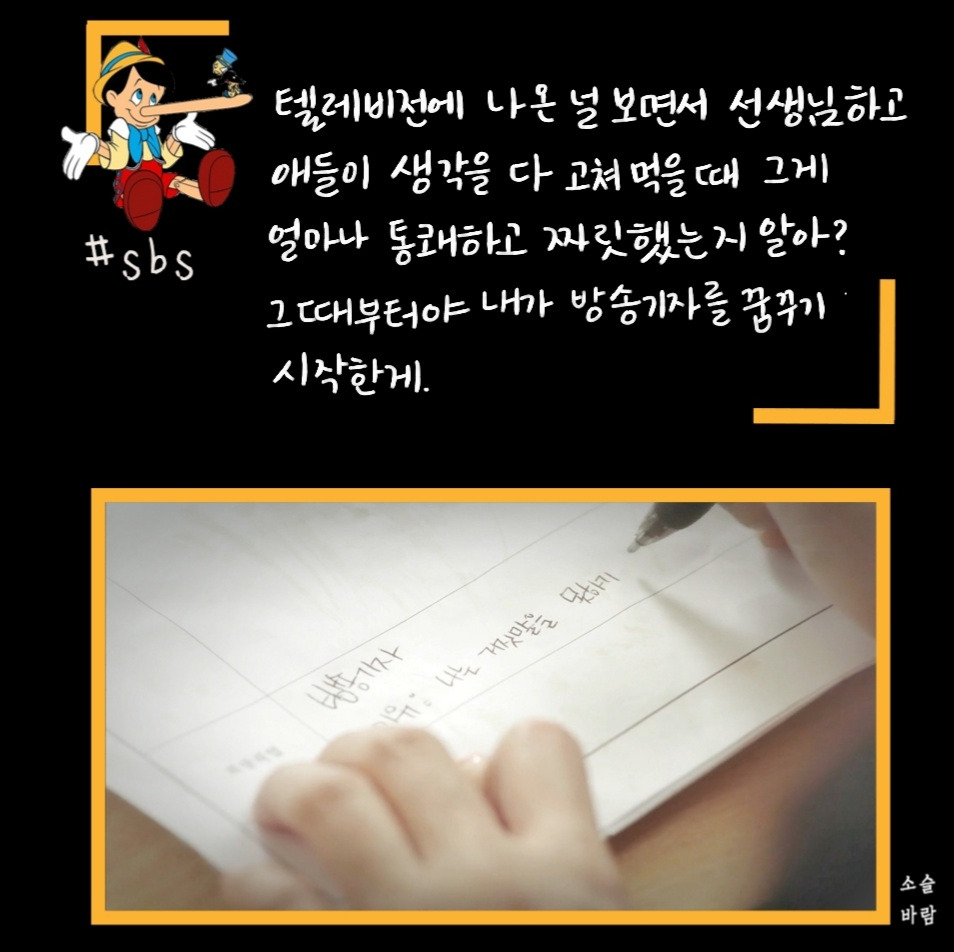 텔레비전에 나온 널 보면서 선생님하고
애들이 생각을 다 고쳐먹을때 그게
얼마나 통쾌하고 짜릿했는지 알아?
그때부터야 내가 방송기자를 꿈꾸기
시작한게.
#sbs
방송기자
이유: 나는 거짓말을 못하기
소슬
바람